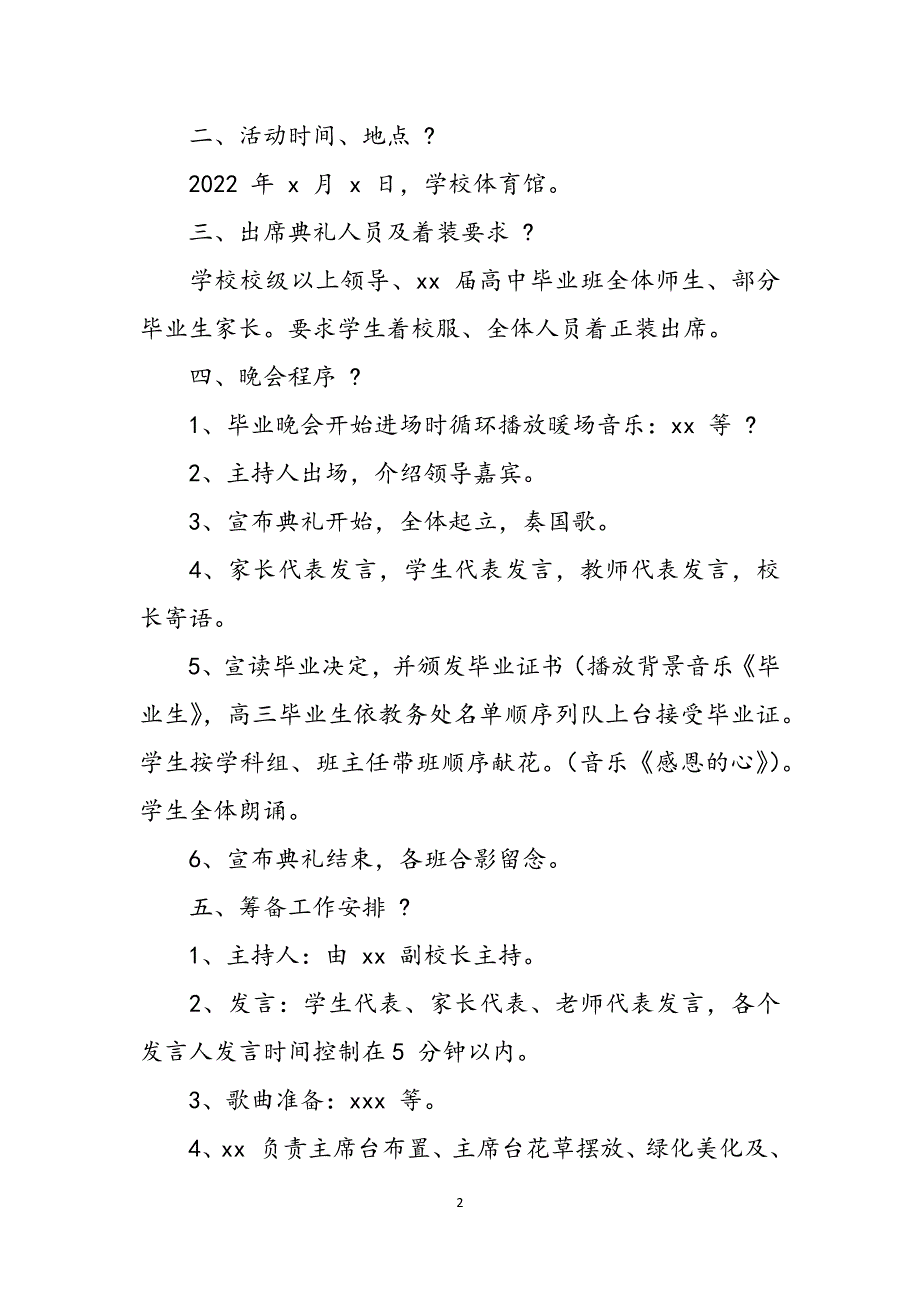 二、活动时间、地点 ?
2022 年 x 月 x 日，学校体育馆。
三、出席典礼人员及着装要求 ?
学校校级以上领导、xx 届高中毕业班全体师生、部分
毕业生家长。要求学生着校服、全体人员着正装出席。
四、晚会程序 ?
1、毕业晚会开始进场时循环播放暖场音乐：xx 等 ?
2、主持人出场，介绍领导嘉宾。
3、宣布典礼开始，全体起立，奏国歌。
4、家长代表发言，学生代表发言，教师代表发言，校
长寄语。
5、宣读毕业决定，并颁发毕业证书（播放背景音乐《毕
业生》，高三毕业生依教务处名单顺序列队上台接受毕业证。
学生按学科组、班主任带班顺序献花。（音乐《感恩的心》）。
学生全体朗诵。
6、宣布典礼结束，各班合影留念。
五、筹备工作安排 ?
1、主持人：由 xx 副校长主持。
2、发言：学生代表、家长代表、老师代表发言，各个
发言人发言时间控制在5 分钟以内。
3、歌曲准备：xxx 等。
4、xx 负责主席台布置、主席台花草摆放、绿化美化及、
2